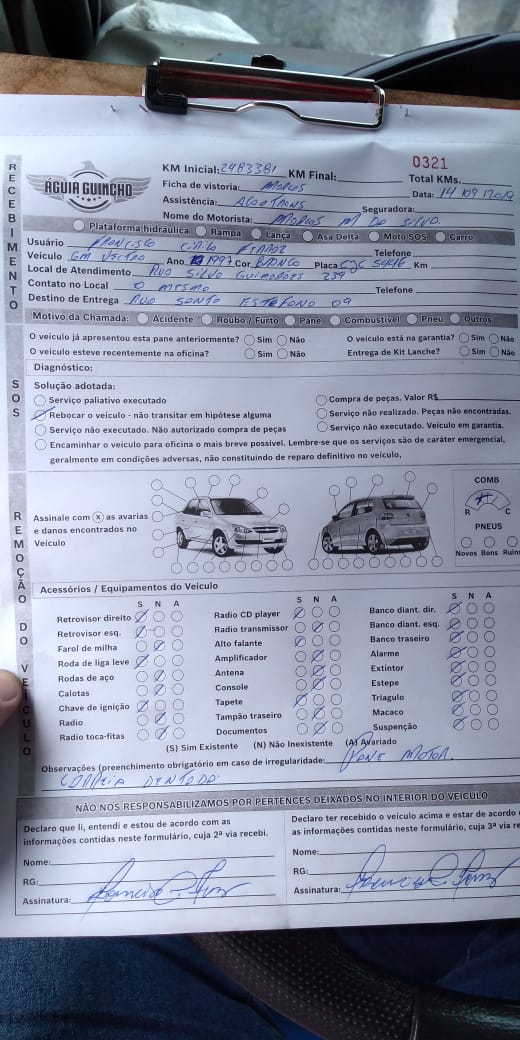 0321
ÁGUIA GUINCHO
KM Inicial: 2483381 KM Final: Total KMs.
Ficha de vistoria: Marcos Data: 14/09/2019
Assistência: Seguradora:
Nome do Motorista: Marcos M da Silva.
RECEBIMENTO
Plataforma hidráulica Rampa Lança Asa Delta Moto SOS Carro
Usuário Francisco Telefone
Veículo GM Vectra Ano 1997 Cor Branco Placa CJC 5446 Km
Local de Atendimento Rua Silvo Guimarães 239
Contato no Local O mesmo Telefone
Destino de Entrega Rua Santo Estefano 09
Motivo da Chamada: Acidente Roubo / Furto Pane Combustível Pneu Outros
O veículo já apresentou esta pane anteriormente? Sim Não O veículo está na garantia? Sim Não
O veículo esteve recentemente na oficina? Sim Não Entrega de Kit Lanche? Sim Não
Diagnóstico:
SOS
Solução adotada:
Serviço paliativo executado Compra de peças, Valor R$
Rebocar o veículo - não transitar em hipótese alguma Serviço não realizado. Peças não encontradas.
Serviço não executado. Não autorizado compra de peças Serviço não executado. Veículo em garantia.
Encaminhar o veículo para oficina o mais breve possível. Lembre-se que os serviços são de caráter emergencial,
geralmente em condições adversas, não constituindo de reparo definitivo no veículo,
REMOÇÃO DO VEÍCULO
Assinale com X as avarias
e danos encontrados no
Veículo
COMB
R C
PNEUS
Novos Bons Ruins
Acessórios / Equipamentos do Veículo
S N A S N A S N A
Retrovisor direito Radio CD player Banco diant. dir.
Retrovisor esq. Radio transmissor Banco diant. esq.
Farol de milha Alto falante Banco traseiro
Roda de liga leve Amplificador Alarme
Rodas de aço Antena Extintor
Calotas Console Estepe
Chave de ignição Tapete Triagulo
Radio Tampão traseiro Macaco
Radio toca-fitas Documentos Suspenção
(S) Sim Existente (N) Não Inexistente (A) Avariado
Observações (preenchimento obrigatório em caso de irregularidade: Pane motor.
Correia dentada
NÃO NOS RESPONSABILIZAMOS POR PERTENCES DEIXADOS NO INTERIOR DO VEÍCULO
Declaro que li, entendi e estou de acordo com as
informações contidas neste formulário, cuja 2ª via recebi.
Nome:
RG:
Assinatura:
Declaro ter recebido o veículo acima e estar de acordo
as informações contidas neste formulário, cuja 3ª via
Nome:
RG:
Assinatura: